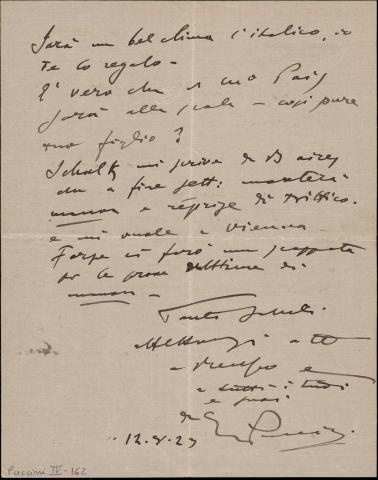 Sarà un bel clima l'italico, io
Te lo regalo -
È vero che il tuo Pais
sarà alla Scala - così pure
tuo figlio?
Schalk mi scrive da B aires
che a fine sett: monterà
manon e réprise di Trittico.
e mi vuole a Vienna -
Forse ci farò una scappata
per le prove ultime di
manon -
Tanti saluti
a te
e
a tutti i tuoi
e
da G Puccini
12.8.23
Puccini IV-162